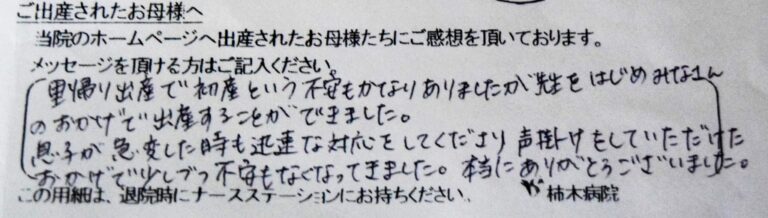 ご出産されたお母様へ
当院のホームページへ出産されたお母様たちにご感想を頂いております。
メッセージを頂ける方はご記入ください。
里帰り出産で初産という不安もかなりありましたが先生をはじめみなさん
のおかげで出産することができました。
息子が急変した時も迅速な対応をしてくださり声掛けをしていただけた
おかげで少しづつ不安もなくなってきました。本当にありがとうございました。
この用紙は、退院時にナースステーションにお持ちください。 柿木病院